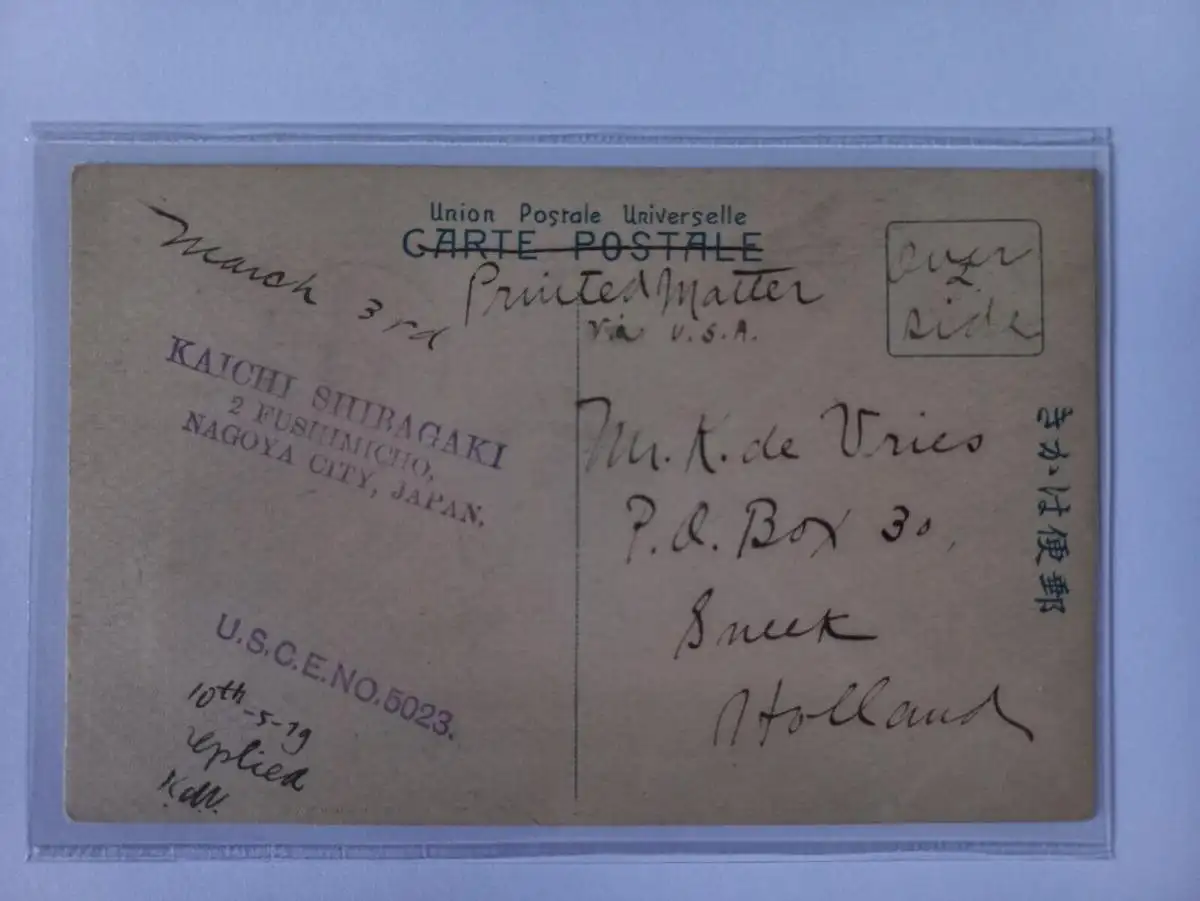 Union Postale Universelle
CARTE POSTALE
March 3rd
Printed Matter
via U.S.A.
Over
side
KAICHI SHIRAGAKI
2 FUSHIMICHO,
NAGOYA CITY, JAPAN.
Mr. K. de Vries
P.O. Box 30,
Sneek
Holland
きかは便郵
U.S.C.E.NO.5023.
10th-5-19
replied
K.d.V.